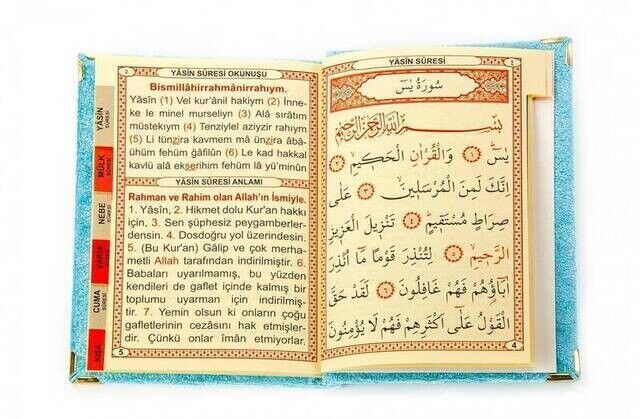 ٥
YÂSÎN SÛRESİ OKUNUŞU
Bismillâhirrahmânirrahıym.
Yâsîn (1) Vel kur'ânil hakiym (2) İnne-
ke le minel murseliyn. (3) Alâ sıratım
müstekıym (4) Tenziylel aziyzir rahıym
(5) Li tünzira kavmem mâ ünzira âbâ-
ühüm fehüm ğâfilûn (6) Le kad hakkal
kavlü alâ ekserihim fehüm lâ yü'minûn
YÂSÎN SÛRESİ ANLAMI
Rahman ve Rahim olan Allah'ın İsmiyle.
1. Yâsîn, 2. Hikmet dolu Kur'an hakkı
için, 3. Sen şüphesiz peygamberler-
densin. 4. Dosdoğru yol üzerindesin.
5. (Bu Kur'an) Gâlip ve çok merha-
metli Allah tarafından indirilmiştir. 6.
Babaları uyarılmamış, bu yüzden
kendileri de gaflet içinde kalmış bir
toplumu uyarman için indirilmiş-
tir. 7. Yemin olsun ki onların çoğu
gafletlerinin cezâsını hak etmişler-
dir. Çünkü onlar îmân etmiyorlar.
5
YÂSİN
SÛRESİ
MÜLK
SÛRESİ
NEBE
SÛRESİ
VAKIA
SÛRESİ
CUMA
SÛRESİ
KISA
YÂSÎN SÛRESİ
٤
سُورَةُ يٰسۤ
بِسْمِ اللّٰهِ الرَّحْمٰنِ الرَّحِيمِ
يٰسۤ ﴿١﴾ وَالْقُرْاٰنِ الْحَكٖيمِ ﴿٢﴾
اِنَّكَ لَمِنَ الْمُرْسَلٖينَ ﴿٣﴾ عَلٰى
صِرَاطٍ مُسْتَقٖيمٍ ﴿٤﴾ تَنْزٖيلَ الْعَزٖيزِ
الرَّحٖيمِ ﴿٥﴾ لِتُنْذِرَ قَوْمًا مَٓا اُنْذِرَ
اٰبَٓاؤُ۬هُمْ فَهُمْ غَافِلُونَ ﴿٦﴾ لَقَدْ حَقَّ
الْقَوْلُ عَلٰٓى اَكْثَرِهِمْ فَهُمْ لَا يُؤْمِنُونَ
4